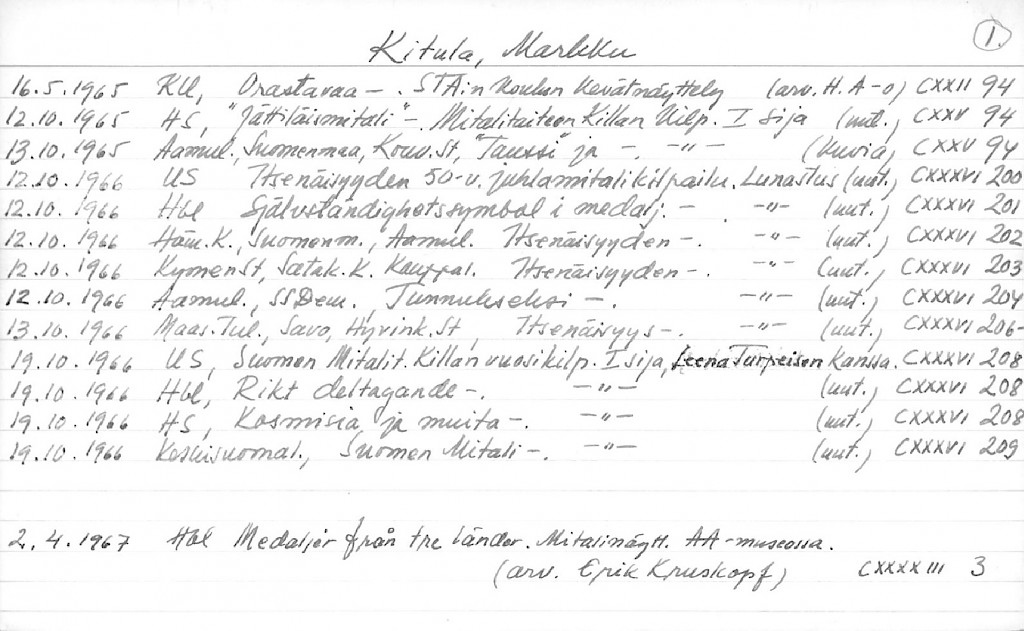 1.
Kitula, Markku
16.5.1965 KU, Orastavaa -. STA:n koulun kevätnäyttely (arv. H. A-o) CXXII 94
12.10.1965 HS, "Jättiläismitali" -. Mitalitaiteen Killan kilp. I sija (uut.) CXXV 94
13.10.1965 Aamul., Suomenmaa, Kouv.St, "Tanssi" ja -. -"- (kuvia) CXXV 94
12.10.1966 US Itsenäisyyden 50-v. juhlamitalikilpailu. Lunastus (uut.) CXXXVI 200
12.10.1966 Hbl Självständighetssymbol i medalj. - -"- (uut.) CXXXVI 201
12.10.1966 Häm.K., Suomenm., Aamul. Itsenäisyyden -. -"- (uut.) CXXXVI 202
12.10.1966 KymenSt, Satak.K. Kauppal. Itsenäisyyden -. -"- (uut.) CXXXVI 203
12.10.1966 Aamul., SSDem., Tunnukseksi -. -"- (uut.) CXXXVI 204
13.10.1966 Maas.Tul., Savo, Hyvink.St, Itsenäisyys -. -"- (uut.) CXXXVI 206-
19.10.1966 US, Suomen Mitalit. Killan vuosikilp. I sija, Leena Turpeisen kanssa. CXXXVI 208
19.10.1966 Hbl, Rikt deltagande -. -"- (uut.) CXXXVI 208
19.10.1966 HS, Kosmisia ja muita -. -"- (uut.) CXXXVI 208
19.10.1966 Keskisuomal., Suomen Mitali -. -"- (uut.) CXXXVI 209
2.4.1967 Hbl Medaljer från tre länder. Mitalinäytt. AA-museossa.
(arv. Erik Kruskopf) CXXXXIII 3